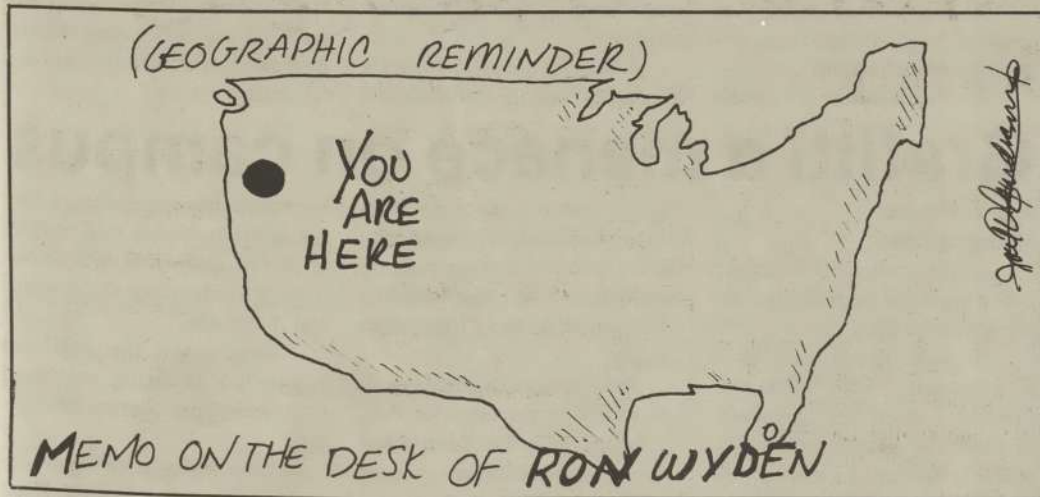 (GEOGRAPHIC REMINDER)
YOU
ARE
HERE
MEMO ON THE DESK OF RON WYDEN